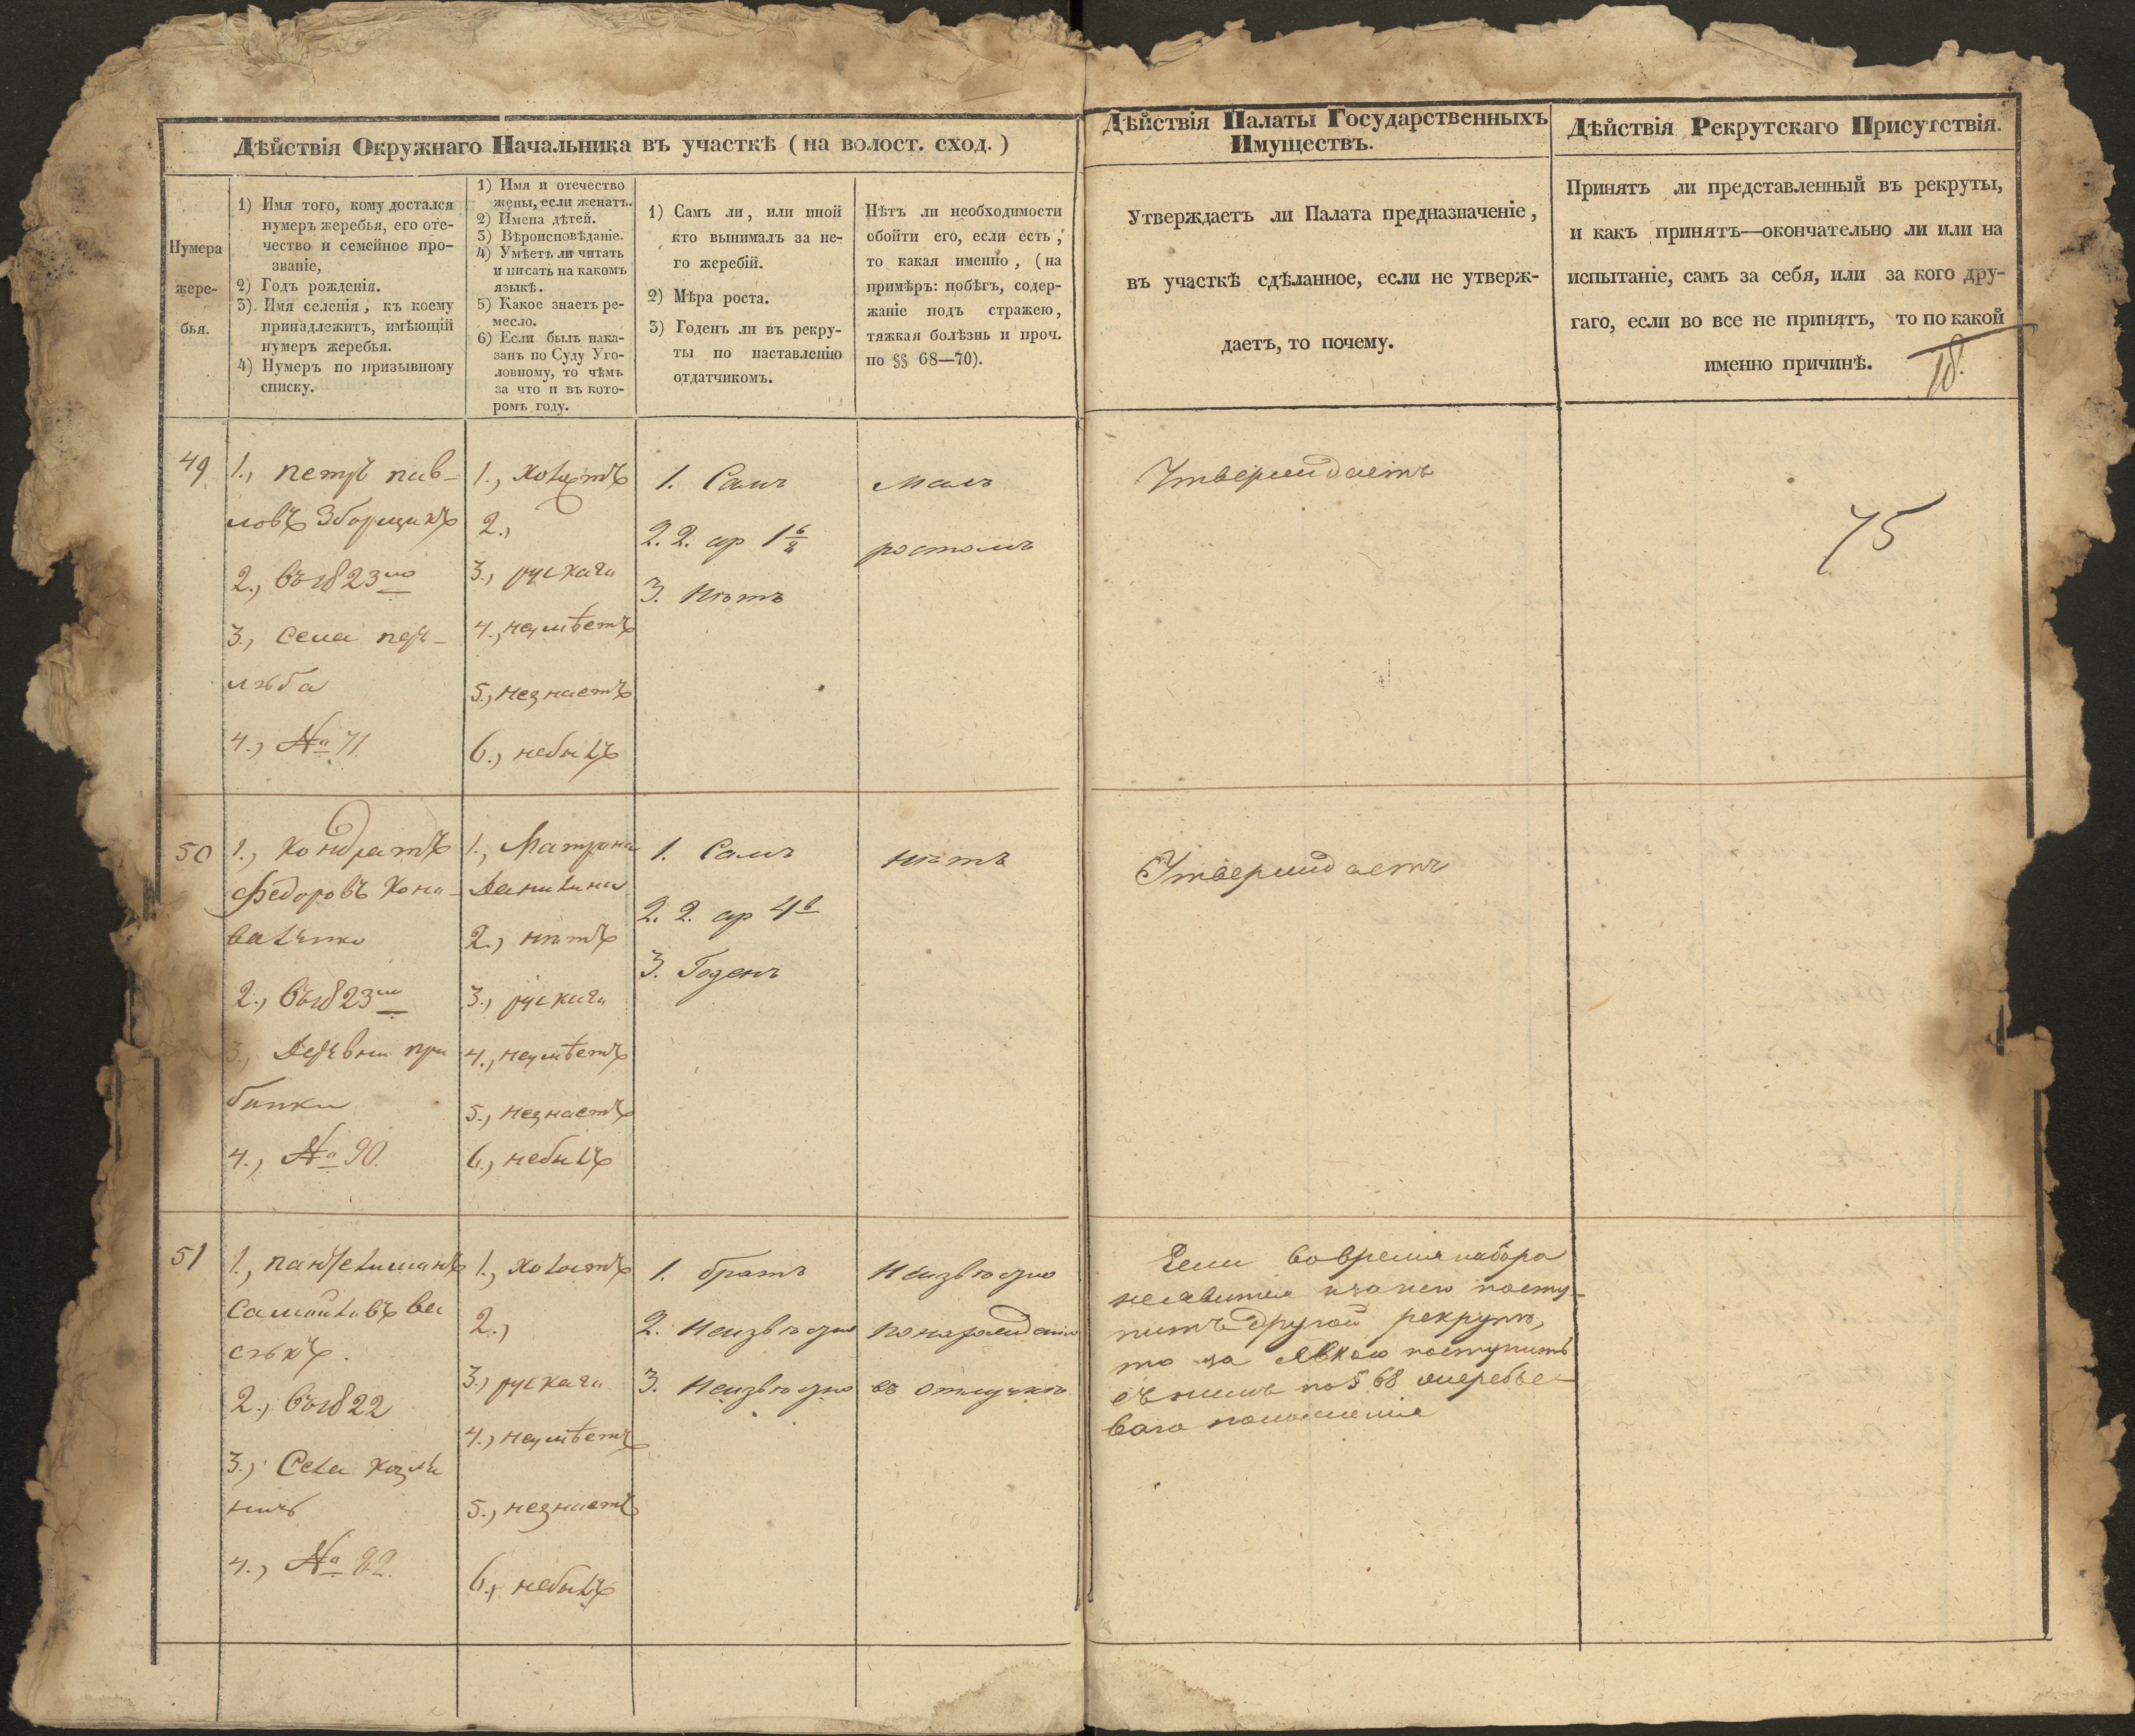 Дѣйствія Окружнаго Начальника въ участкѣ (на волост. сход.)
Нумера
жере-
бья.
1) Имя того, кому достался
нумеръ жеребья, его оте-
чество и семейное про-
званіе,
2) Годъ рожденія.
3) Имя селенія, къ коему
принадлежитъ, имѣющій
нумеръ жеребья.
4) Нумеръ по призывному
списку.
1) Имя и отечество
жены, если женатъ.
2) Имена дѣтей.
3) Вѣроисповѣданіе.
4) Умѣетъ ли читать
и писать на какомъ
языкѣ.
5) Какое знаетъ ре-
месло.
6) Если былъ нака-
занъ по Суду Уго-
ловному, то чѣмъ
за что и въ кото-
ромъ году.
1) Самъ ли, или иной
кто вынималъ за не-
го жеребій.
2) Мѣра роста.
3) Годенъ ли въ рекру-
ты по наставленію
отдатчикомъ.
Нѣтъ ли необходимости
обойти его, если есть,
то какая именно, (на
примѣръ: побѣгъ, содер-
жаніе подъ стражею,
тяжкая болѣзнь и проч.
по §§ 68—70).
Дѣйствія Палаты Государственныхъ
Имуществъ.
Утверждаетъ ли Палата предназначеніе,
въ участкѣ сдѣланное, если не утверж-
даетъ, то почему.
Дѣйствія Рекрутскаго Присутствія.
Принятъ ли представленный въ рекруты,
и какъ принятъ—окончательно ли или на
испытаніе, самъ за себя, или за кого дру-
гаго, если во все не принятъ, то по какой
именно причинѣ.
18.
49
1., петръ пав-
ловъ Зборщикъ
2., въ 1823мъ
3., Села
4., № 71
1., холостъ
2.,
3., рускаго
4., неумѣетъ
5., незнаетъ
6., небылъ
1. Самъ
2. 2. ар
3. Нѣтъ
Малъ
ростомъ
Утверждаетъ
75
50
1., Кондратъ
Федоровъ Коно-
валенко
2., въ 1823мъ
3., Деревни гри
банки
4., № 90.
1., Матрона
Данилина
2., нѣтъ
3., рускаго
4., неумѣетъ
5., незнаетъ
6., небылъ
1. Самъ
2. 2. ар 4 в
3. Годенъ
нѣтъ
Утверждаетъ
51
1., пантелимонъ
Самойловъ ва
2., въ 1822
3., Села
4., № 92.
1., холостъ
2.,
3., рускаго
4., неумѣетъ
5., незнаетъ
6., небылъ
1. братъ
2. Неизвѣстно
3. Неизвѣстно
Неизвѣстно
по нахожденію
въ отлучкѣ
Если вовремя набора
неявится и за него посту-
питъ другой рекрутъ,
то за явкою поступить
съ нимъ по § 68 жеребье-
ваго положенія